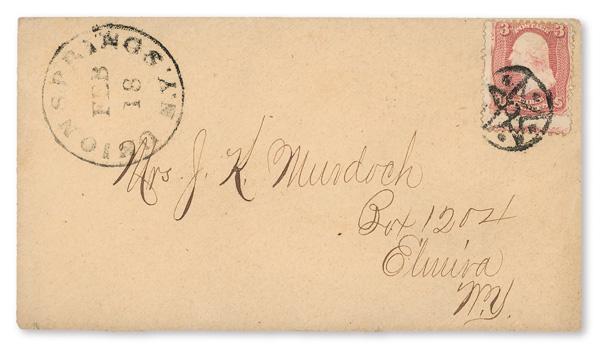 UNION SPRINGS, N.Y.
FEB
18
3 3
Mrs. J. K. Murdoch
Box 1204
Elmira
N.Y.